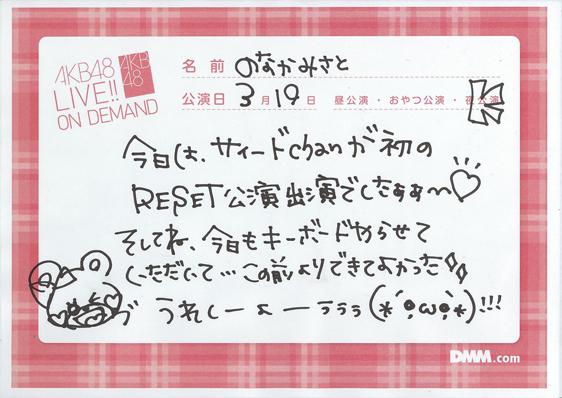 AKB48
LIVE!!
ON DEMAND
AKB
48
名前 のなかみさと
公演日 3月19日 昼公演・おやつ公演・夜公演
今日は、サイードchanが初の
RESET公演出演でしたぁぁ〜♡
そしてね、今日もキーボードやらせて
いただいて…この前よりできてよかった
うれしーよーぅぅぅ(*´˚ω˚`*)!!!
DMM.com